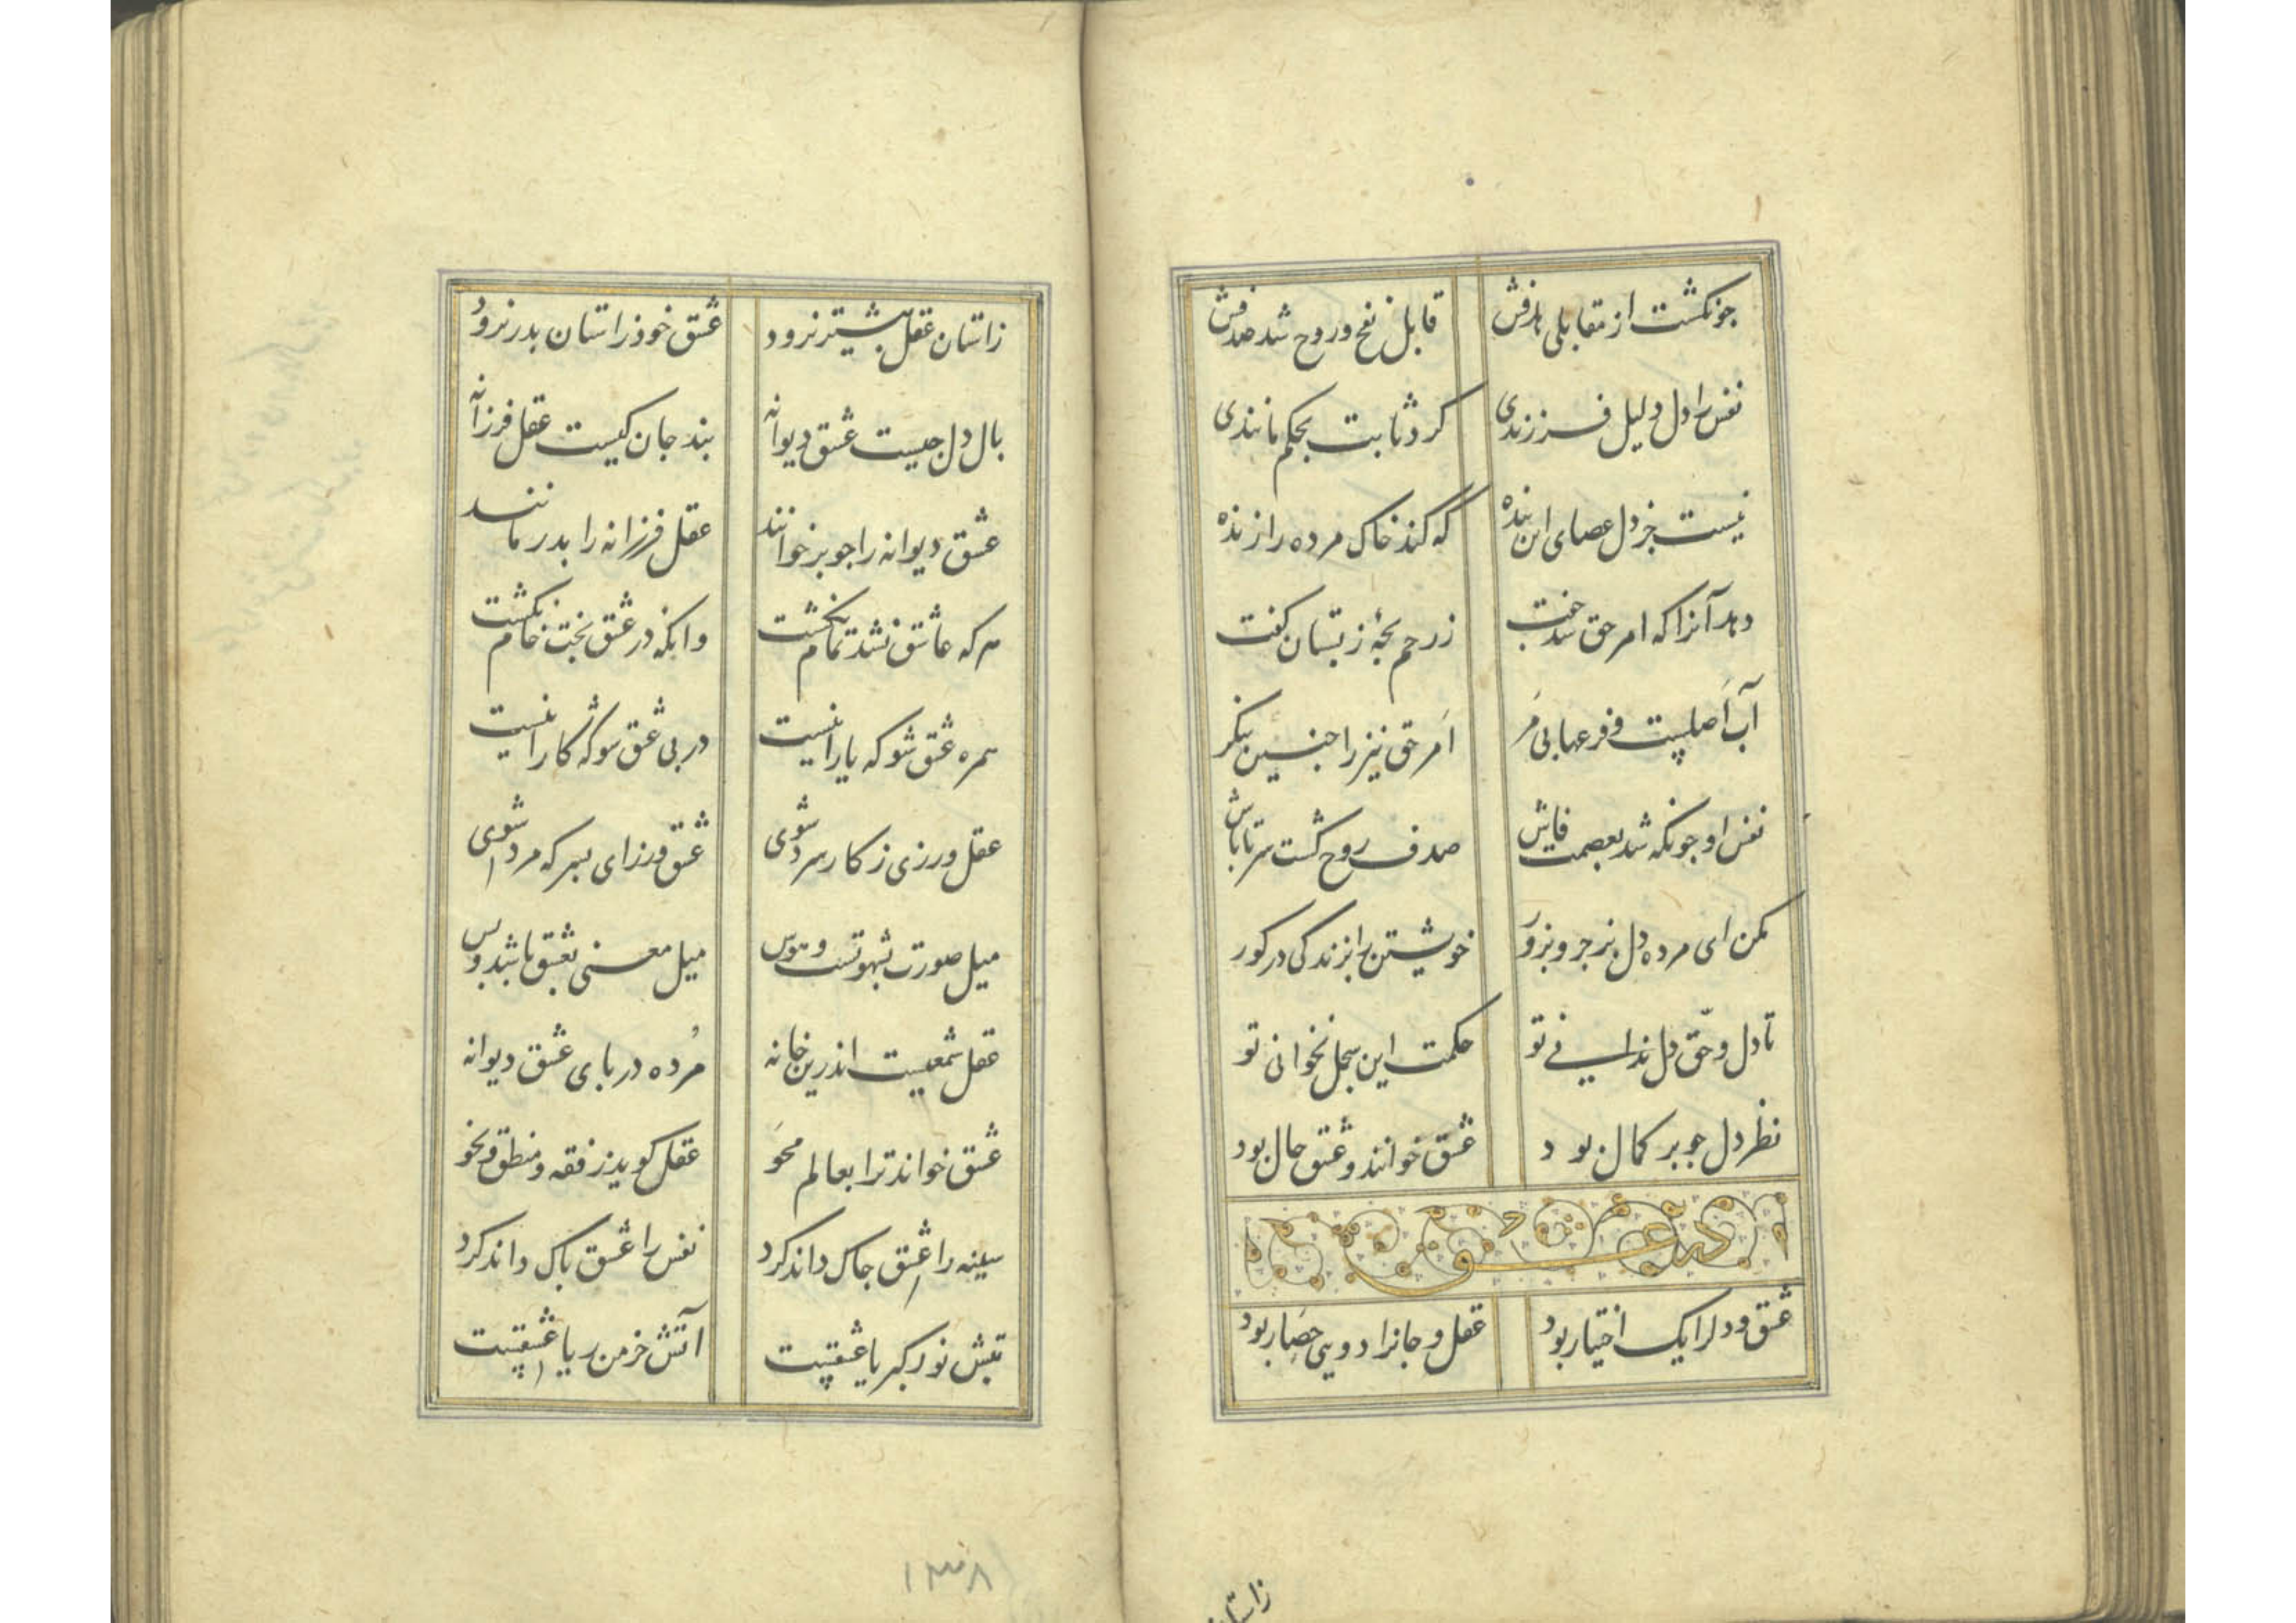 جونکشت از مقابلی هدفش قابل نفخ و روح شد صدفش
نفس را دل دلیل فرزندی کرد ثابت بحکم مانندی
نیست جز دل عصای این بنده که کند خاک مرده را زنده
دهد آنرا که امر حق شد جفت ز رحم بجهٔ ز بستان کفت
آب اصلیست و فرعها بی مَر اَمر حق نیز را جنین بنکر
نفس او جونکه شد بعصمت فاش صدف روح کشت سرتاباش
مکن ای مرده دل بزجر و بزور خویشتن را بزندکی در کور
تا دل و حقّ دل ندانی تو حکمت این سجل نخوانی تو
نظر دل جو بر کمال بود عشق خوانند و عشق حال بود
در عشق
عشق و دلرا یک اختیار بود عقل و جانرا دویی حصار بود
زاستان
زاستان عقل بیشتر نرود عشق خود زاستان بدر نرود
بال دل جیست عشق دیوانه بند جان کیست عقل فرزانه
عشق دیوانه را جو بر خوانند عقل فرزانه را بدر مانند
هر که عاشق نشد تمام نکشت وانکه در عشق بخت خام نکشت
همره عشق شو که یارانیست در بی عشق شو که کارانیست
عقل ورزی ز کار سرد شوی عشق ورز ای بسر که مرد شوی
میل صورت بشهوتست و هوس میل معنی بعشق باشد و بس
عقل شمعیست اندرین خانه مُرده در بای عشق دیوانه
عشق خواند ترا بعالم محو عقل کوید ز فقه و منطق و نحو
سینه را عشق جاک داند کرد نفس را عشق باک داند کرد
تبش نور کبریا عشقیست آتش خرمن ریا عشقیست
۱۳۸